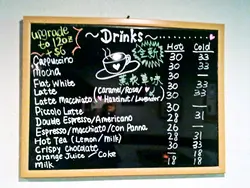 upgrade to 12oz +$6
~Drinks~
Hot Cold
Cappuccino 30 33
Mocha 30 —
Flat White 30 33
Latte (Caramel/Rose/ 30 33
Latte Macchiato Hazelnut/Lavender) 30 —
Piccolo Latte 30
Double Espresso/Americano 28 31
Espresso/Macchiato/Con Panna 26 —
Hot Tea (Lemon/milk) 28 31
Crispy chocolate 30 33
Orange Juice / Coke 18 18
Milk